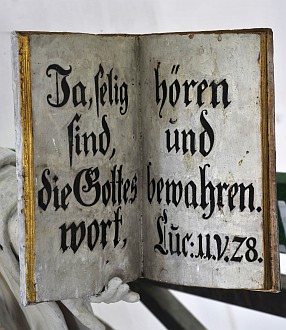 Ja, selig
sind,
die Gottes
wort,
hören
und
bewahren.
Luc: 11. V. 28.